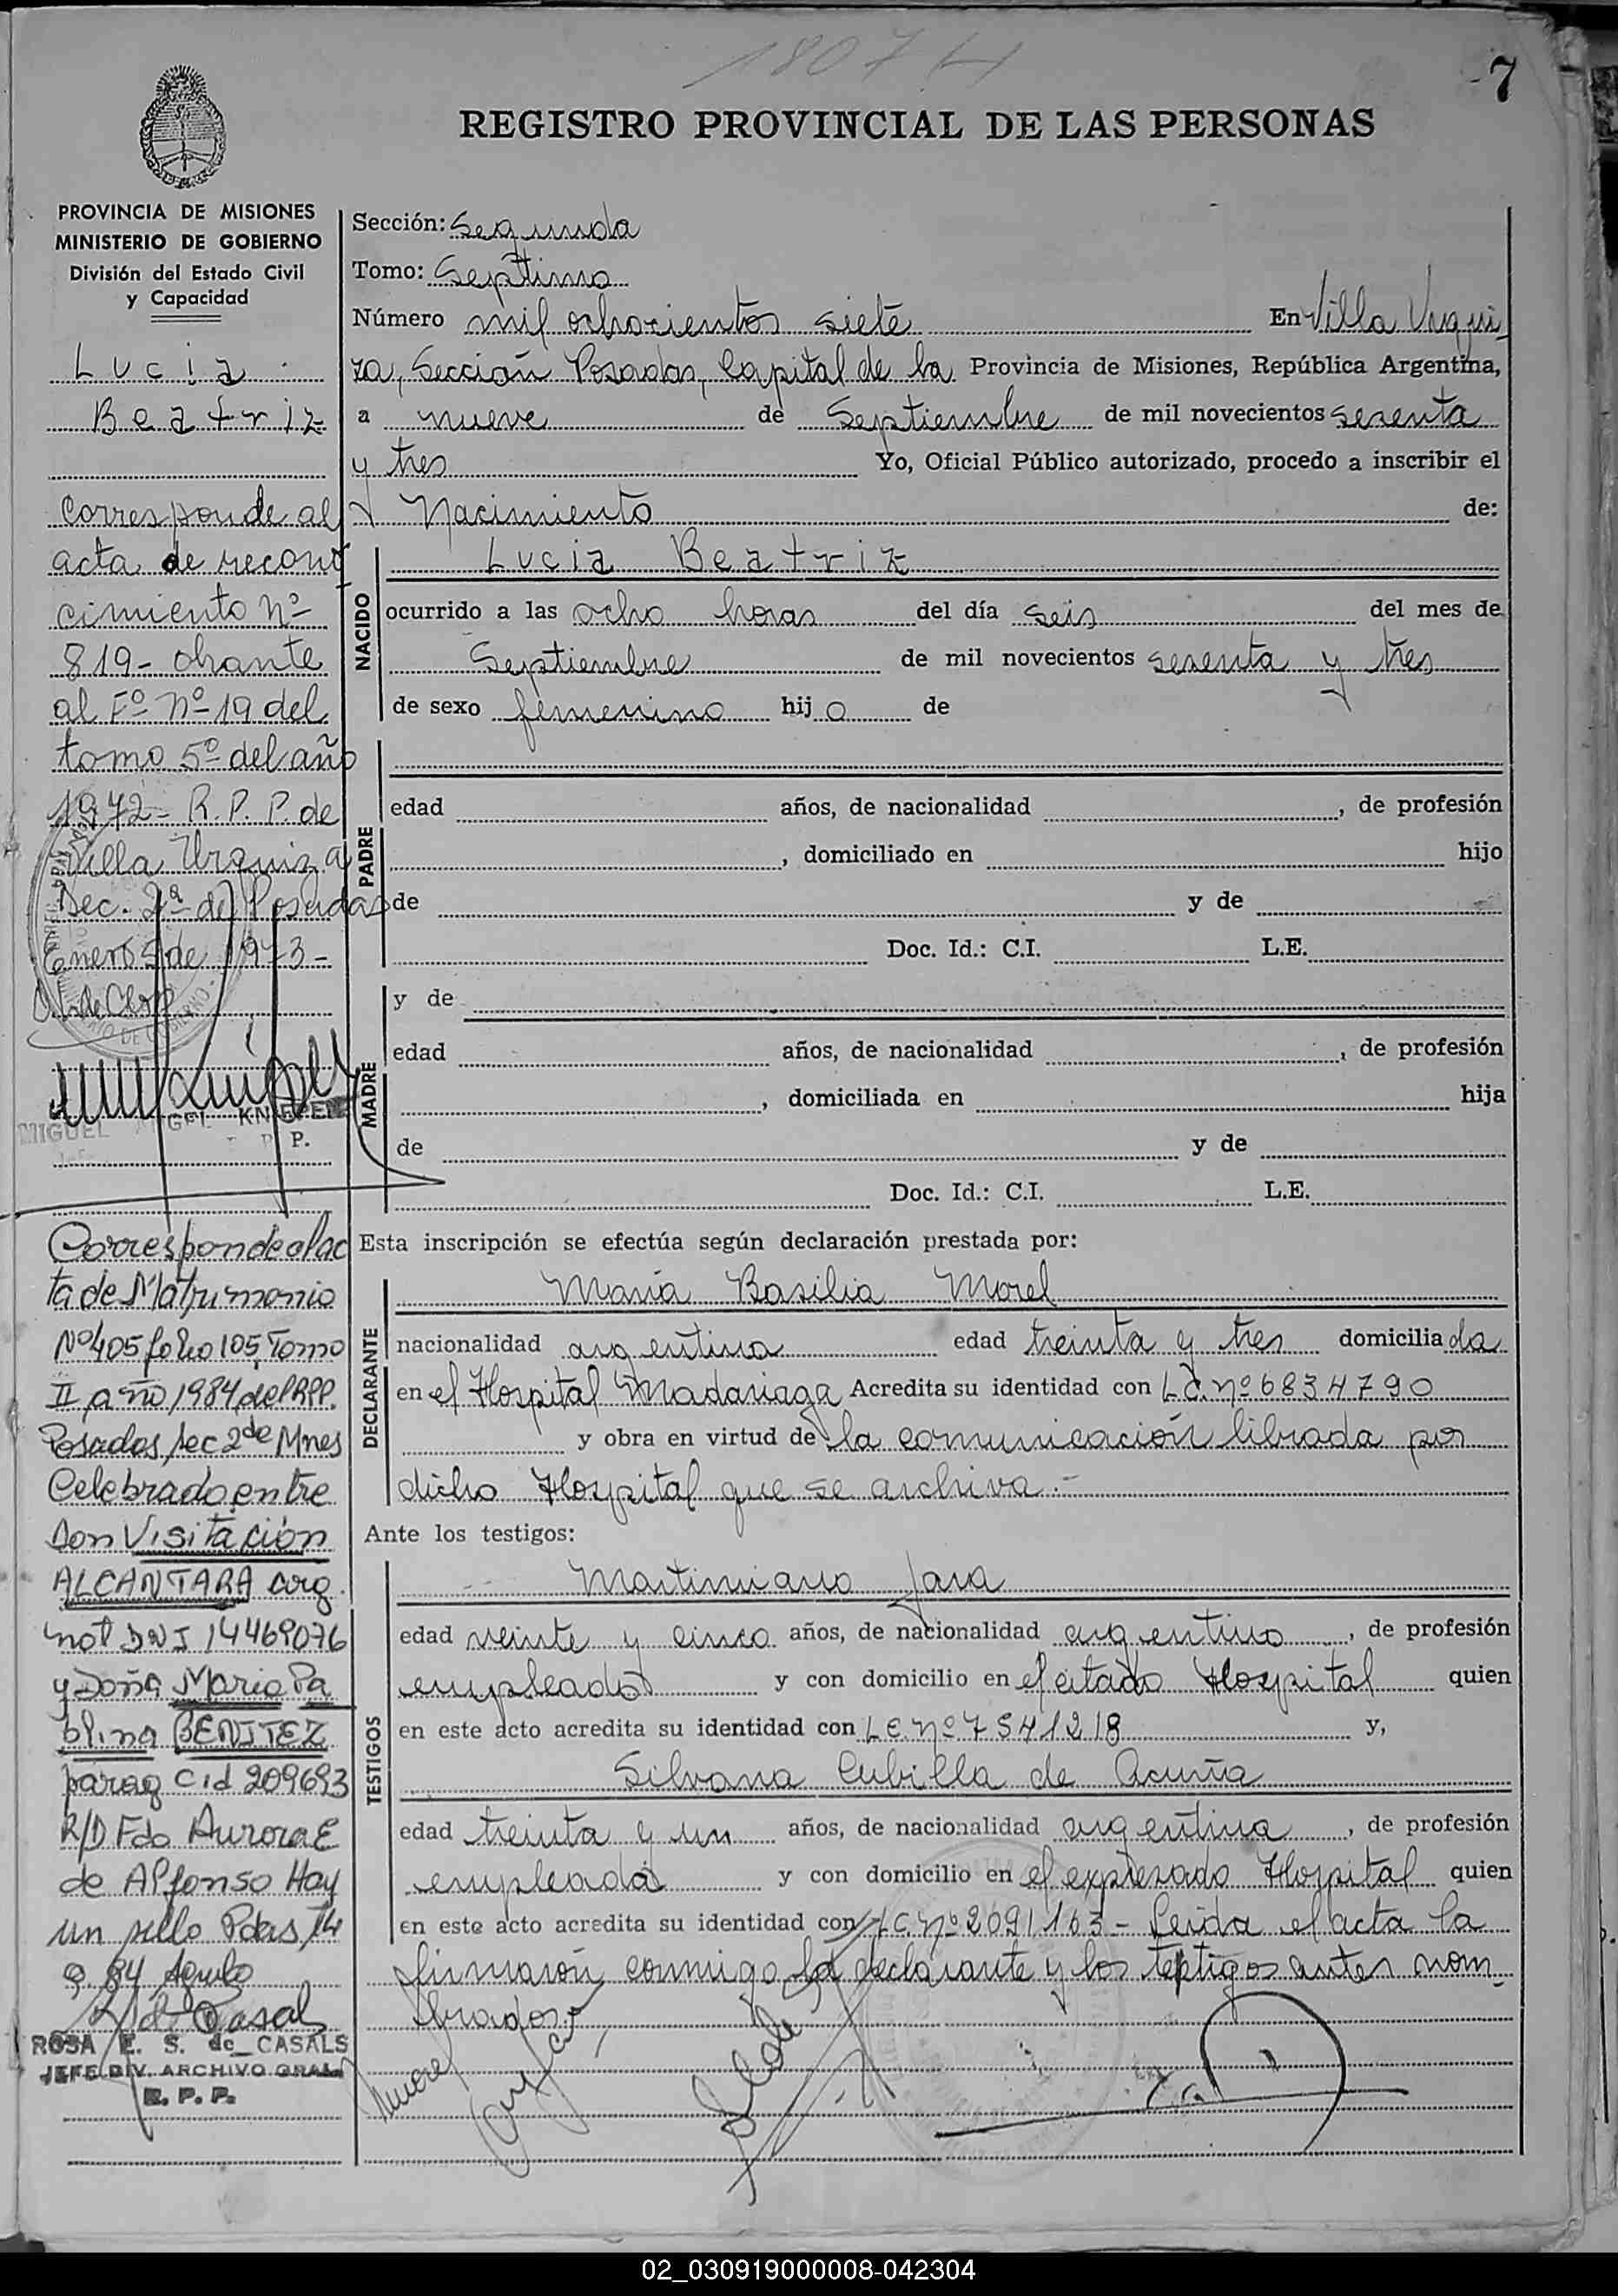 18074
7
REGISTRO PROVINCIAL DE LAS PERSONAS
PROVINCIA DE MISIONES
MINISTERIO DE GOBIERNO
División del Estado Civil
y Capacidad
Lucia
Beatriz
Corresponde al
acta de recono
cimiento nº
819- obrante
al Fº nº 19 del
tomo 5º del año
1972- R. P. P. de
Villa Urquiza
Sec. 2ª de Posadas
Enero 5 de 1973-
MIGUEL ANGEL
P.
Corresponde al ac
ta de Matrimonio
Nº 405 folio 105 Tomo
II año 1984 del RPP.
Posadas, sec 2ª de Mnes
Celebrado entre
Don Visitación
ALCANTARA arg
nat DNI 14469076
y Doña Maria Pa
blina BENITEZ
parag Cid 209693
R/D Fdo Aurora E
de Alfonso Hay
un sello Pdas 14
9. 84
ROSA E. S. de CASALS
JEFE DIV. ARCHIVO GRAL
R. P. P.
Sección: Segunda
Tomo: Septimo
Número mil ochocientos siete En Villa Urqui
za, Sección Posadas, Capital de la Provincia de Misiones, República Argentina,
a nueve de Septiembre de mil novecientos sesenta
y tres Yo, Oficial Público autorizado, procedo a inscribir el
Nacimiento de:
NACIDO
Lucia Beatriz
ocurrido a las ocho horas del día seis del mes de
Septiembre de mil novecientos sesenta y tres
de sexo femenino hijo de
PADRE
edad años, de nacionalidad , de profesión
, domiciliado en hijo
de y de
Doc. Id.: C.I. L.E.
MADRE
y de
edad años, de nacionalidad , de profesión
, domiciliada en hija
de y de
Doc. Id.: C.I. L.E.
Esta inscripción se efectúa según declaración prestada por:
DECLARANTE
Maria Basilia Morel
nacionalidad argentina edad treinta y tres domiciliada
en el Hospital Madariaga Acredita su identidad con L.C. nº 6834790
y obra en virtud de la comunicación librada por
dicho Hospital que se archiva.-
Ante los testigos:
TESTIGOS
Martimiano Jara
edad veinte y cinco años, de nacionalidad argentino, de profesión
empleado y con domicilio en el citado Hospital quien
en este acto acredita su identidad con L.E. nº 7541218 y,
Silvana Cubilla de Acuña
edad treinta y un años, de nacionalidad argentina, de profesión
empleada y con domicilio en el expresado Hospital quien
en este acto acredita su identidad con L.C. nº 2091163- Leida el acta la
firmaron conmigo, la declarante y los testigos antes nom
brados.-
Morel
02_030919000008-042304